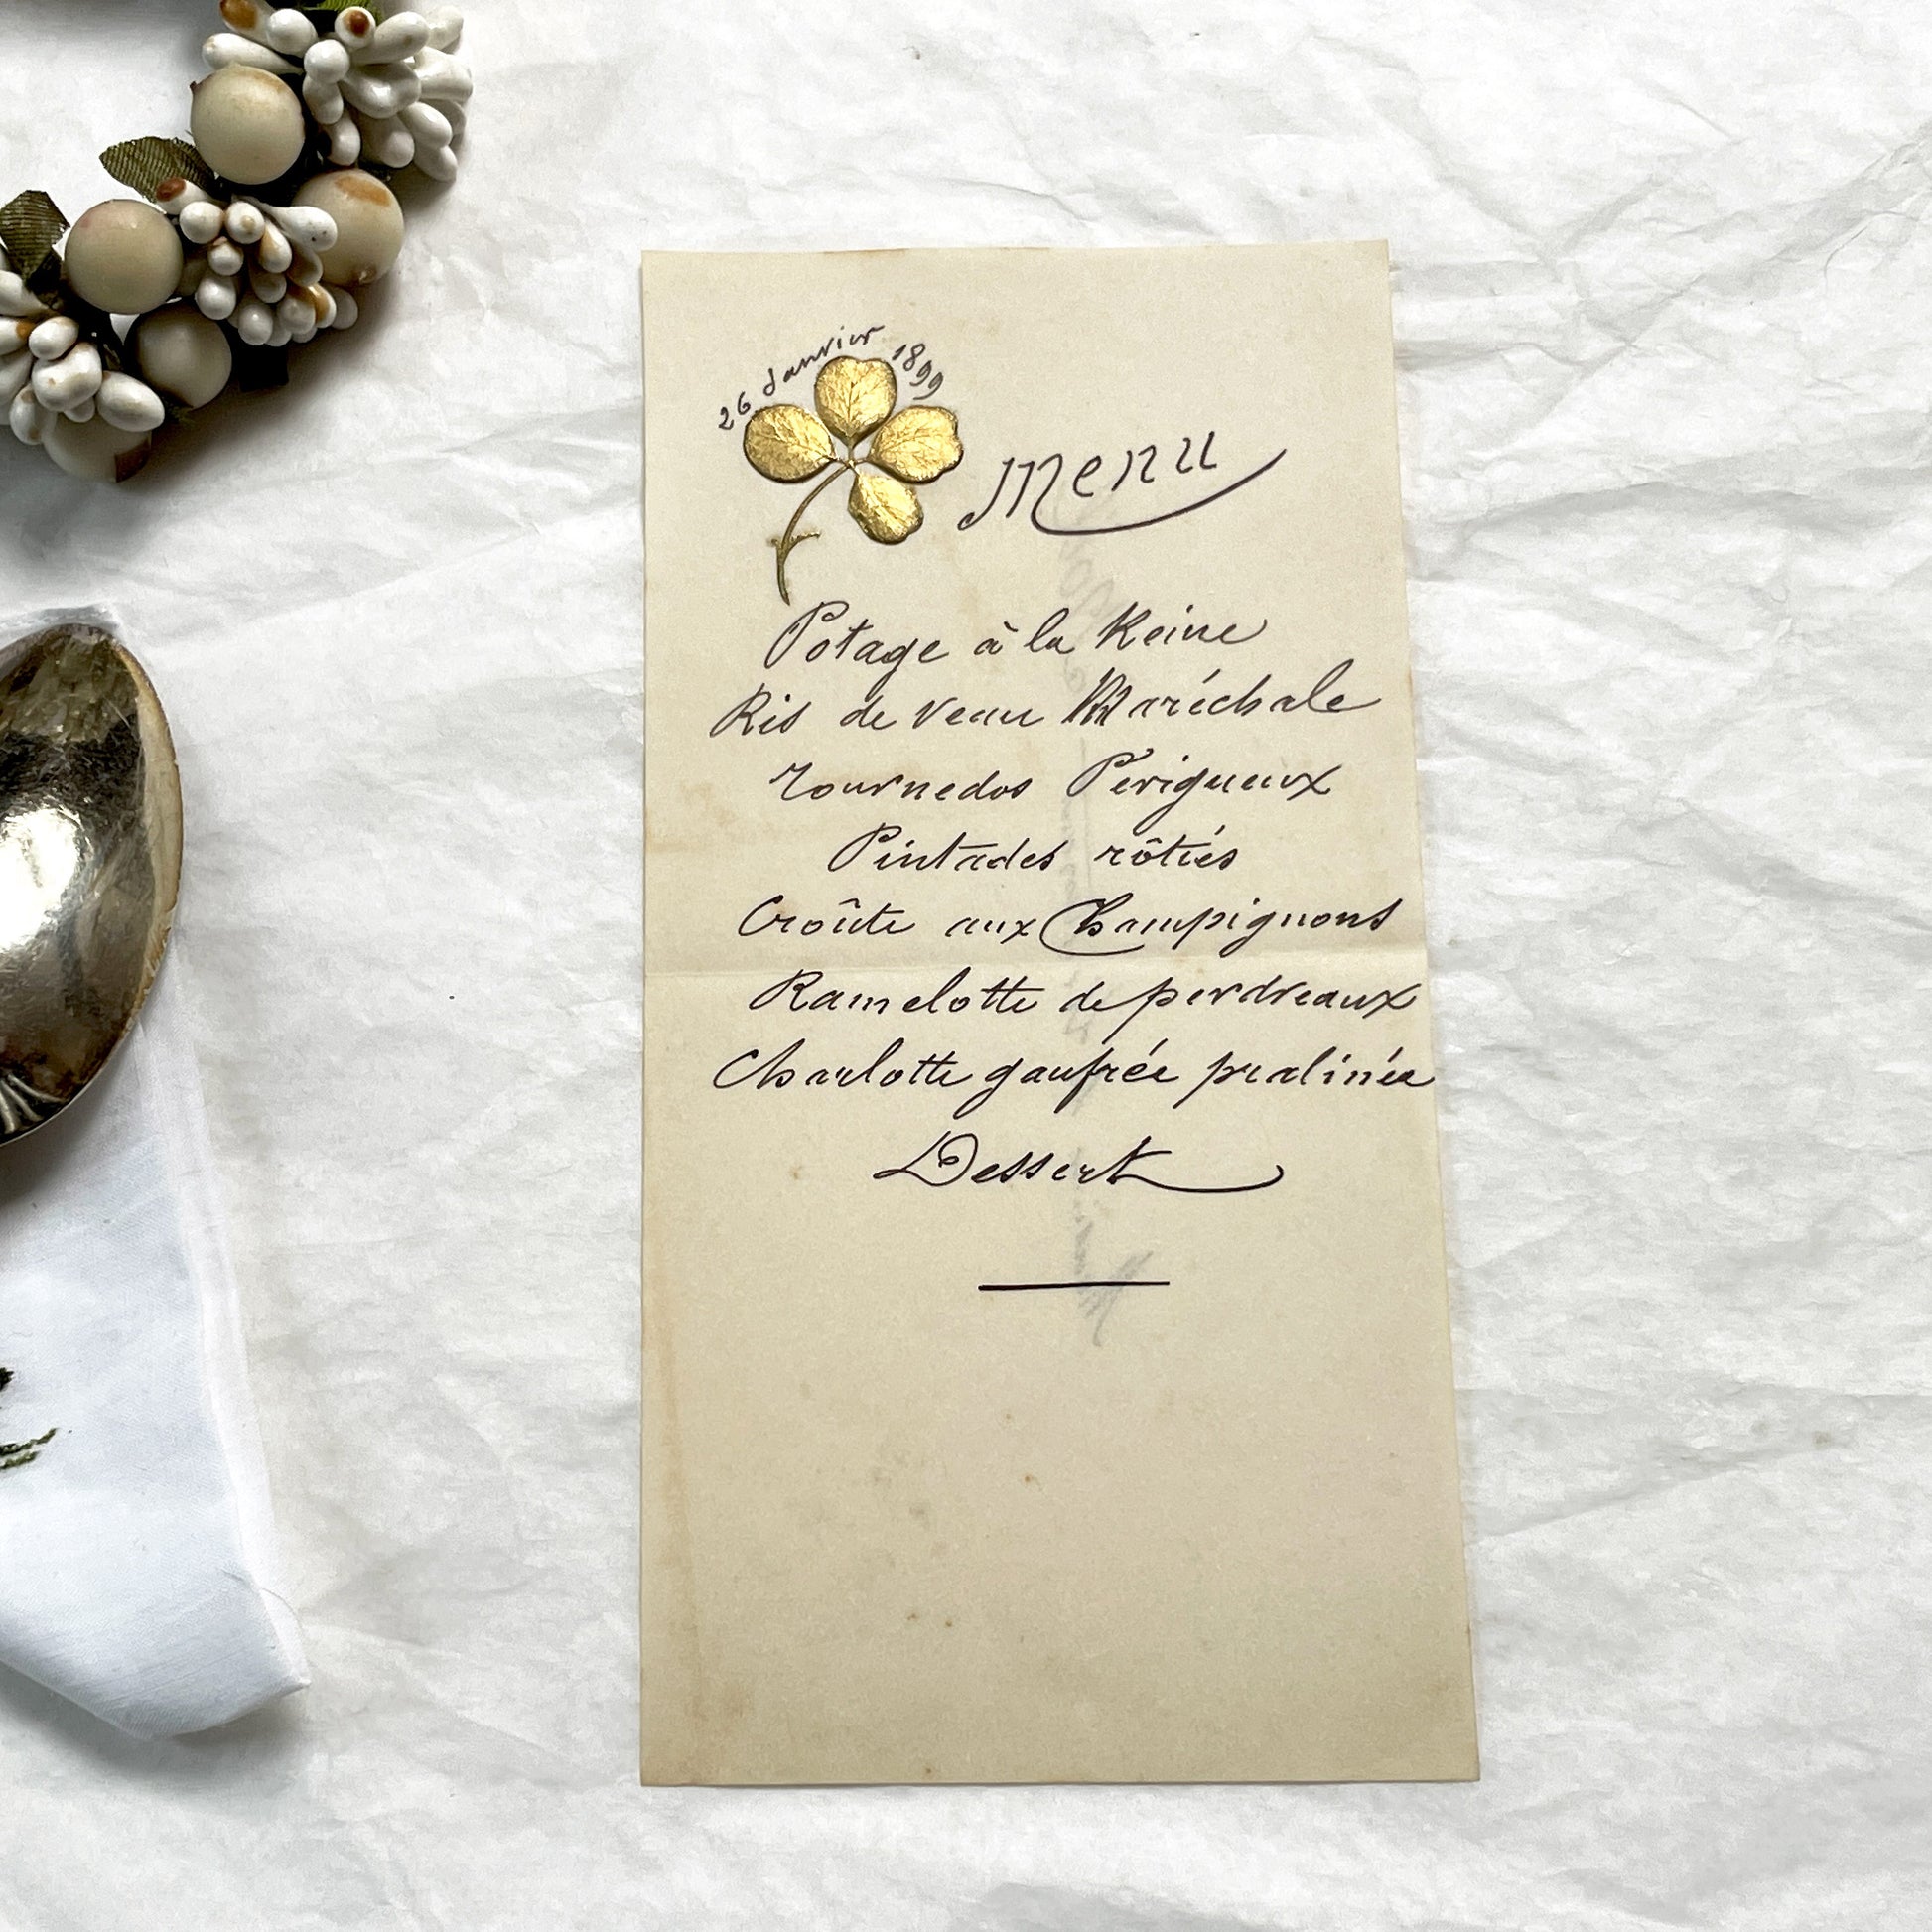 26 Janvier 1899
Menu
Potage à la Reine
Ris de Veau Maréchale
Tournedos Périgueux
Pintades rôties
Croûte aux Champignons
Ramelotte de perdreaux
Charlotte gaufrée pralinée
Dessert